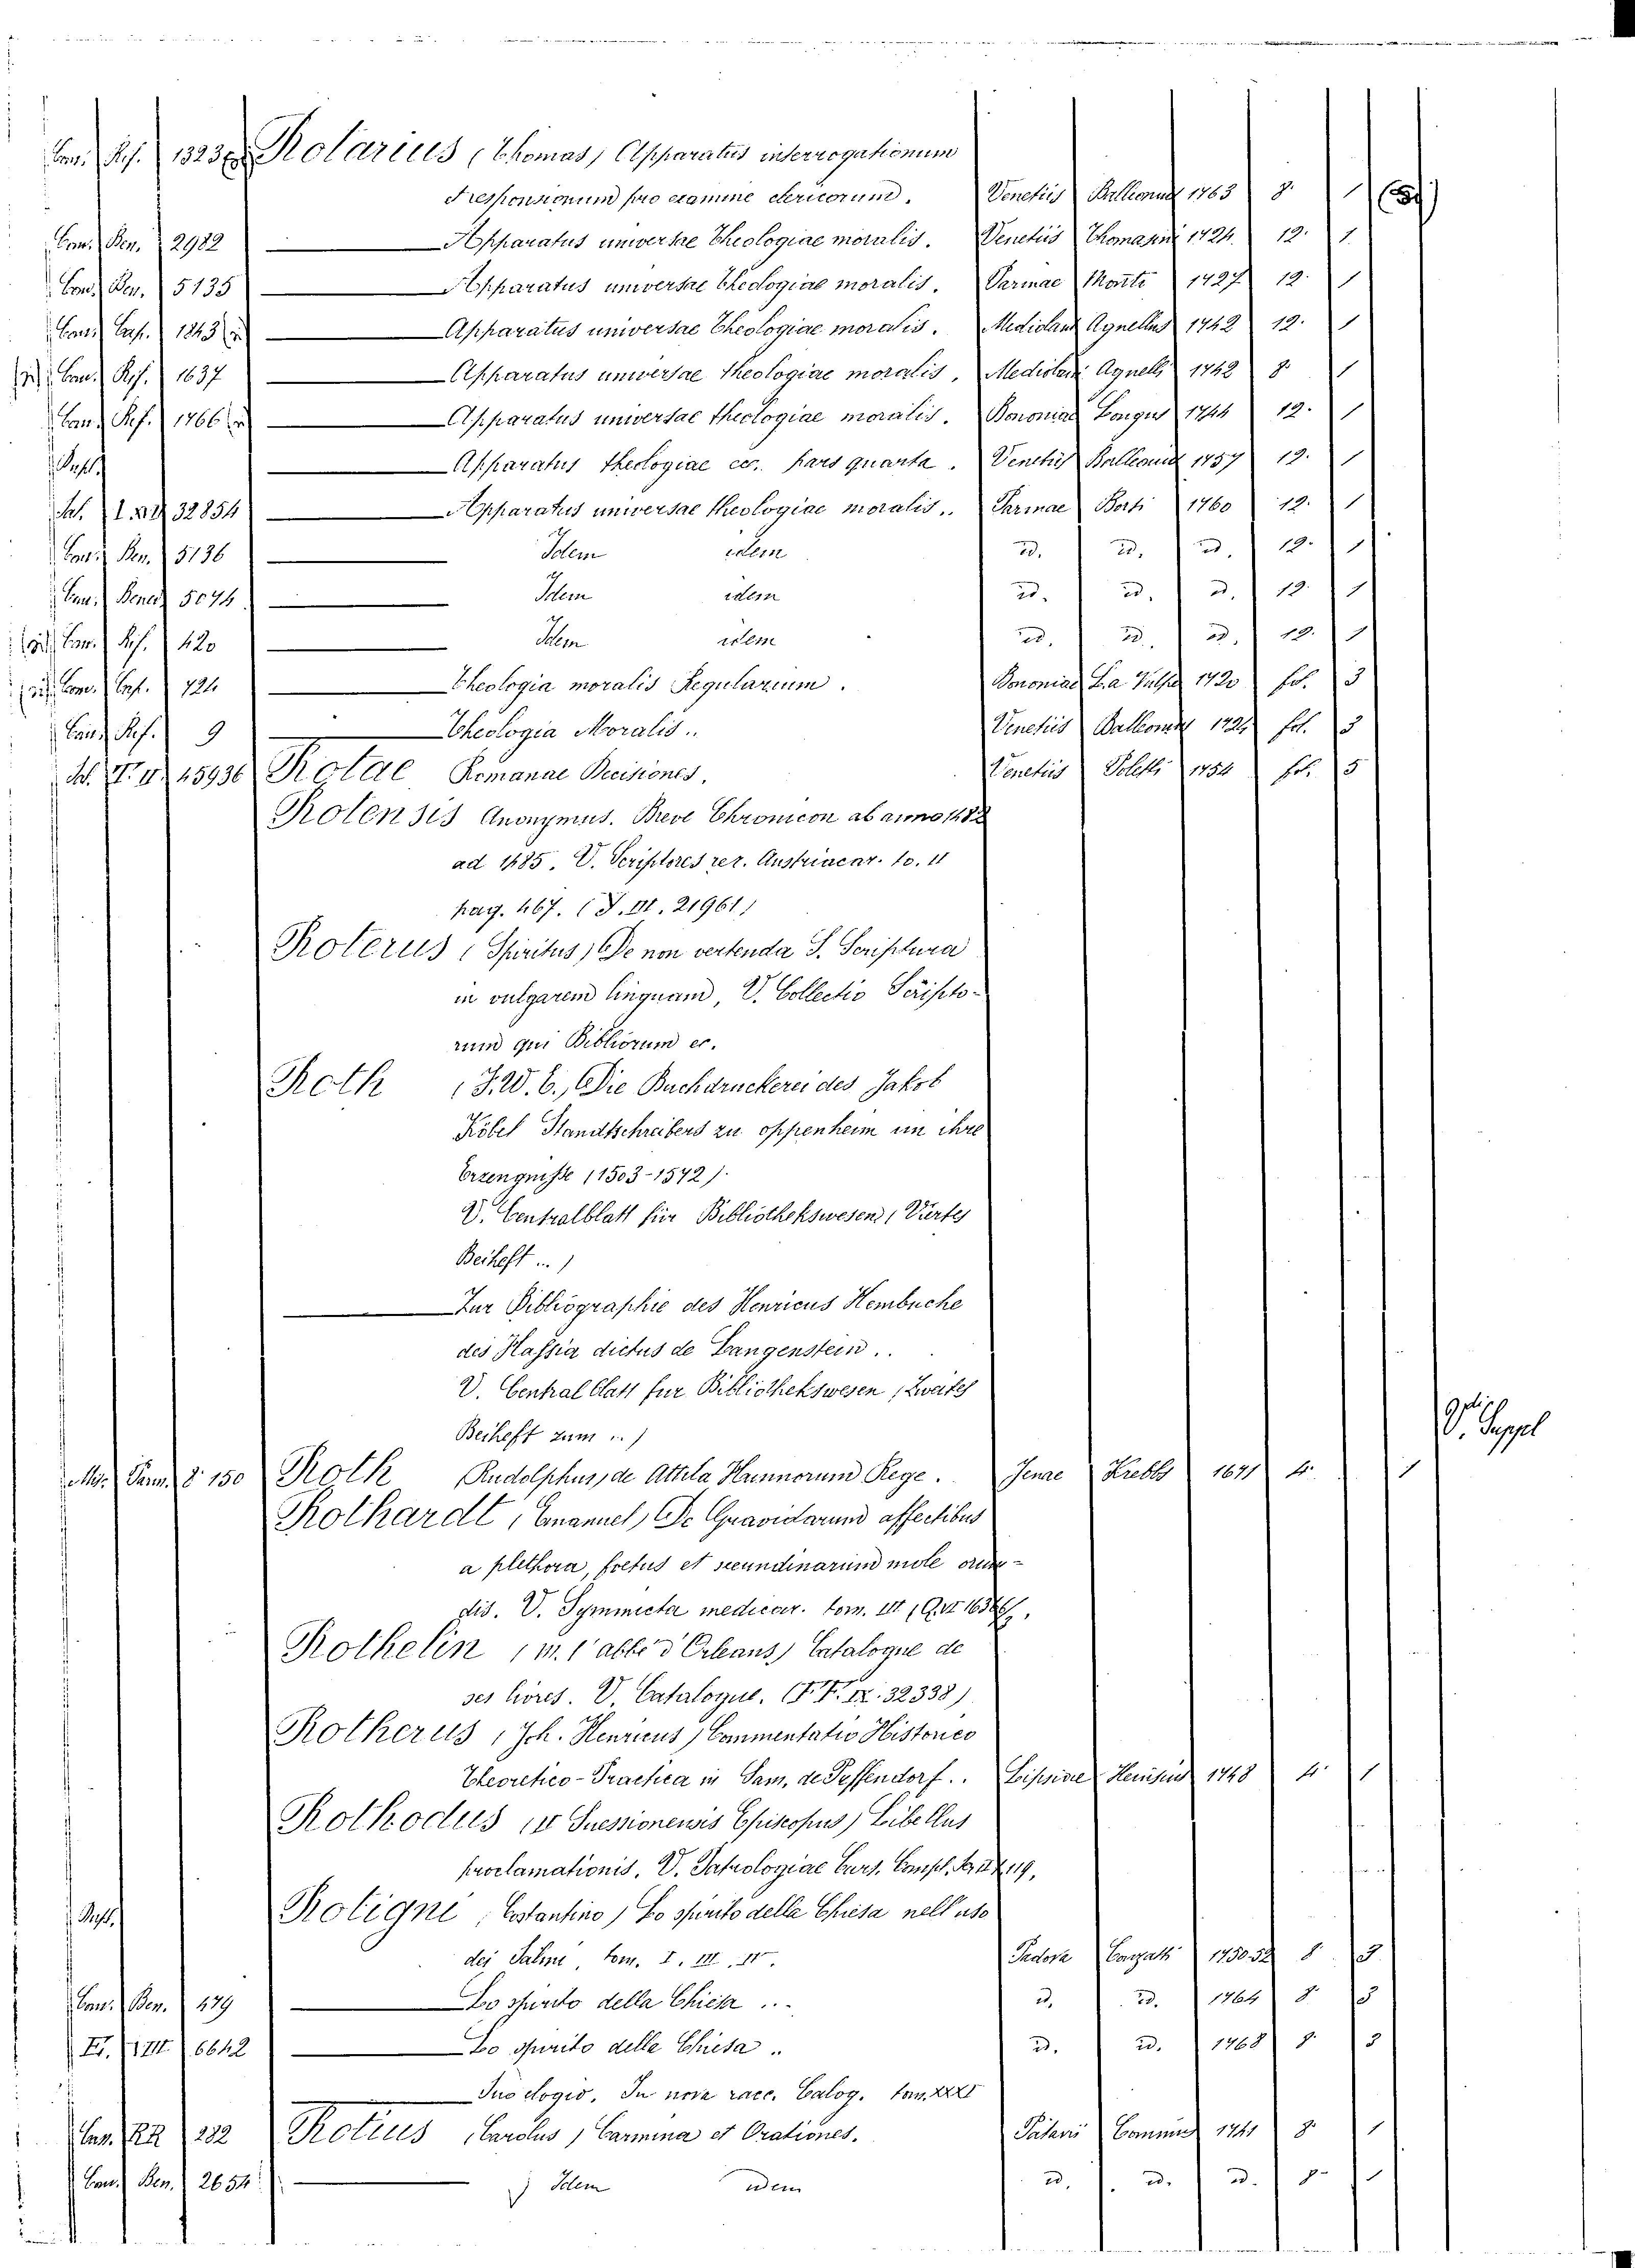 Con. Rif. 1323 Rotarius (Thomas) Apparatus interrogationum
et responsionum pro examine clericorum. Venetiis 1763 8. 1
Con. Ben. 2982 Apparatus universae Theologiae moralis. Venetiis Thomasini 1724. 12. 1
Con. Ben. 5135 Apparatus universae Theologiae moralis. Parmae Monti 1727 12. 1
Con. Cap. 1243 Apparatus universae Theologiae moralis. Mediolani Agnellus 1742 12. 1
Con. Rif. 1637 Apparatus universae theologiae moralis. Mediolani Agnelli 1742 8. 1
Con. Rif. 1766 Apparatus universae theologiae moralis. Bononiae Longus 1744 12. 1
Apparatus theologiae ec. pars quarta. Venetiis 1757 12. 1
32854 Apparatus universae theologiae moralis.. Parmae 1760 12. 1
Con. Ben. 5136 Idem idem id. id. id. 12. 1
Con. Bened. 5074 Idem idem id. id. id. 12. 1
Con. Rif. 420 Idem idem id. id. id. 12. 1
Con. Cap. 724 Theologia moralis Regularium. Bononiae 1720 fol. 3
Con. Rif. 9 Theologia Moralis.. Venetiis fol. 3
45936 Rotae Romanae Decisiones. Venetiis Poletti 1754 fol. 5
Rotensis Anonymus. Breve Chronicon ab anno 1482
ad 1485. V. Scriptores rer. Austriacar. to. II
pag. 467. (J. III. 21961)
Roterus (Spiritus) De non vertenda S. Scriptura
in vulgarem linguam, V. Collectio Scripto-
rum qui Bibliorum ec.
Roth (F. W. E.) Die Buchdruckerei des Jakob
Köbel Standtschreibers zu oppenheim un ihre
Erzengnisse (1503-1572).
V. Centralblatt für Bibliothekswesen (Viertes
Beiheft ...)
Zur Bibliographie des Henricus Hembuche
des Hassia dictus de Langenstein..
V. Central Clatt fur Bibliothekswesen (Zweites
Beiheft zum ..)
V. Suppl
Min. Pann. 8. 150 Roth Rudolphus, de Attila Hunnorum Rege. Jenae Krebbs 1671 4. 1
Rothardt, (Emanuel) De Gravidarum affectibus
a plethora, foetus et secundinarum mole oriun-
dis. V. Symmicta medicar. tom. III
Rothelin (m. l'abbé d'Orleans) Catalogue de
ses livres. V. Catalogue. (F. F. IX. 32338)
Rotherus (Joh. Henricus) Commentatio Historico
Theoretico-Practica in Sam. de Puffendorf.. Lipsiae Heinsius 1748 4. 1
Rothodus (II Suessionensis Episcopus) Libellus
proclamationis. V. Patrologiae Curs. Compl. 119.
Rotigni (Costantino) Lo spirito della Chiesa nell'uso
dei Salmi, tom. I. III. IV. Padova Conzatti 1750.52 8. 3
Con. Ben. 479 Lo spirito della Chiesa ... id. id. 1764 8. 3
6642 Lo spirito della Chiesa .. id. id. 1768 8. 3
Suo elogio. In nova racc. Calog. tom. XXXI
232 Rotius (Carolus) Carmina et Orationes. Patavii Cominus 1741 8. 1
Con. Ben. 2654 Idem idem id. id. id. 8. 1